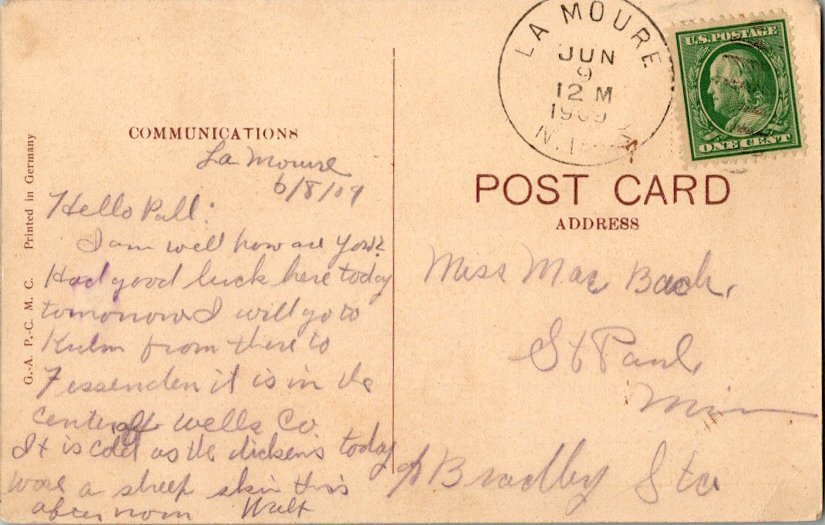 COMMUNICATIONS
La Moure
6/8/09
Hello Pall:
I am well how are you?
Had good luck here today
tomorrow I will go to
Kulm from there to
Fessenden it is in the
center of Wells Co
It is cold as the dickens today
wore a sheep skin this
afternoon Walt
G.-A. P.-C. M. C. Printed in Germany
LA MOURE
JUN
9
12 M
1909
N.
U.S. POSTAGE
ONE CENT
POST CARD
ADDRESS
Miss Mae Bach.
St Paul
Minn
Bradley Sta